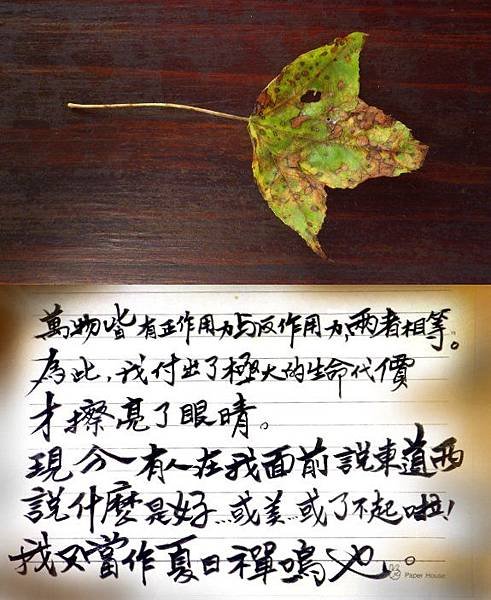 萬物皆有正作用力与反作用力,兩者相等。
為此,我付出了極大的生命代價
才擦亮了眼睛。
現今一有人在我面前說東道西
說什麼是好…或美…或了不起啦!
我只當作夏日禪鳴也。
Paper House